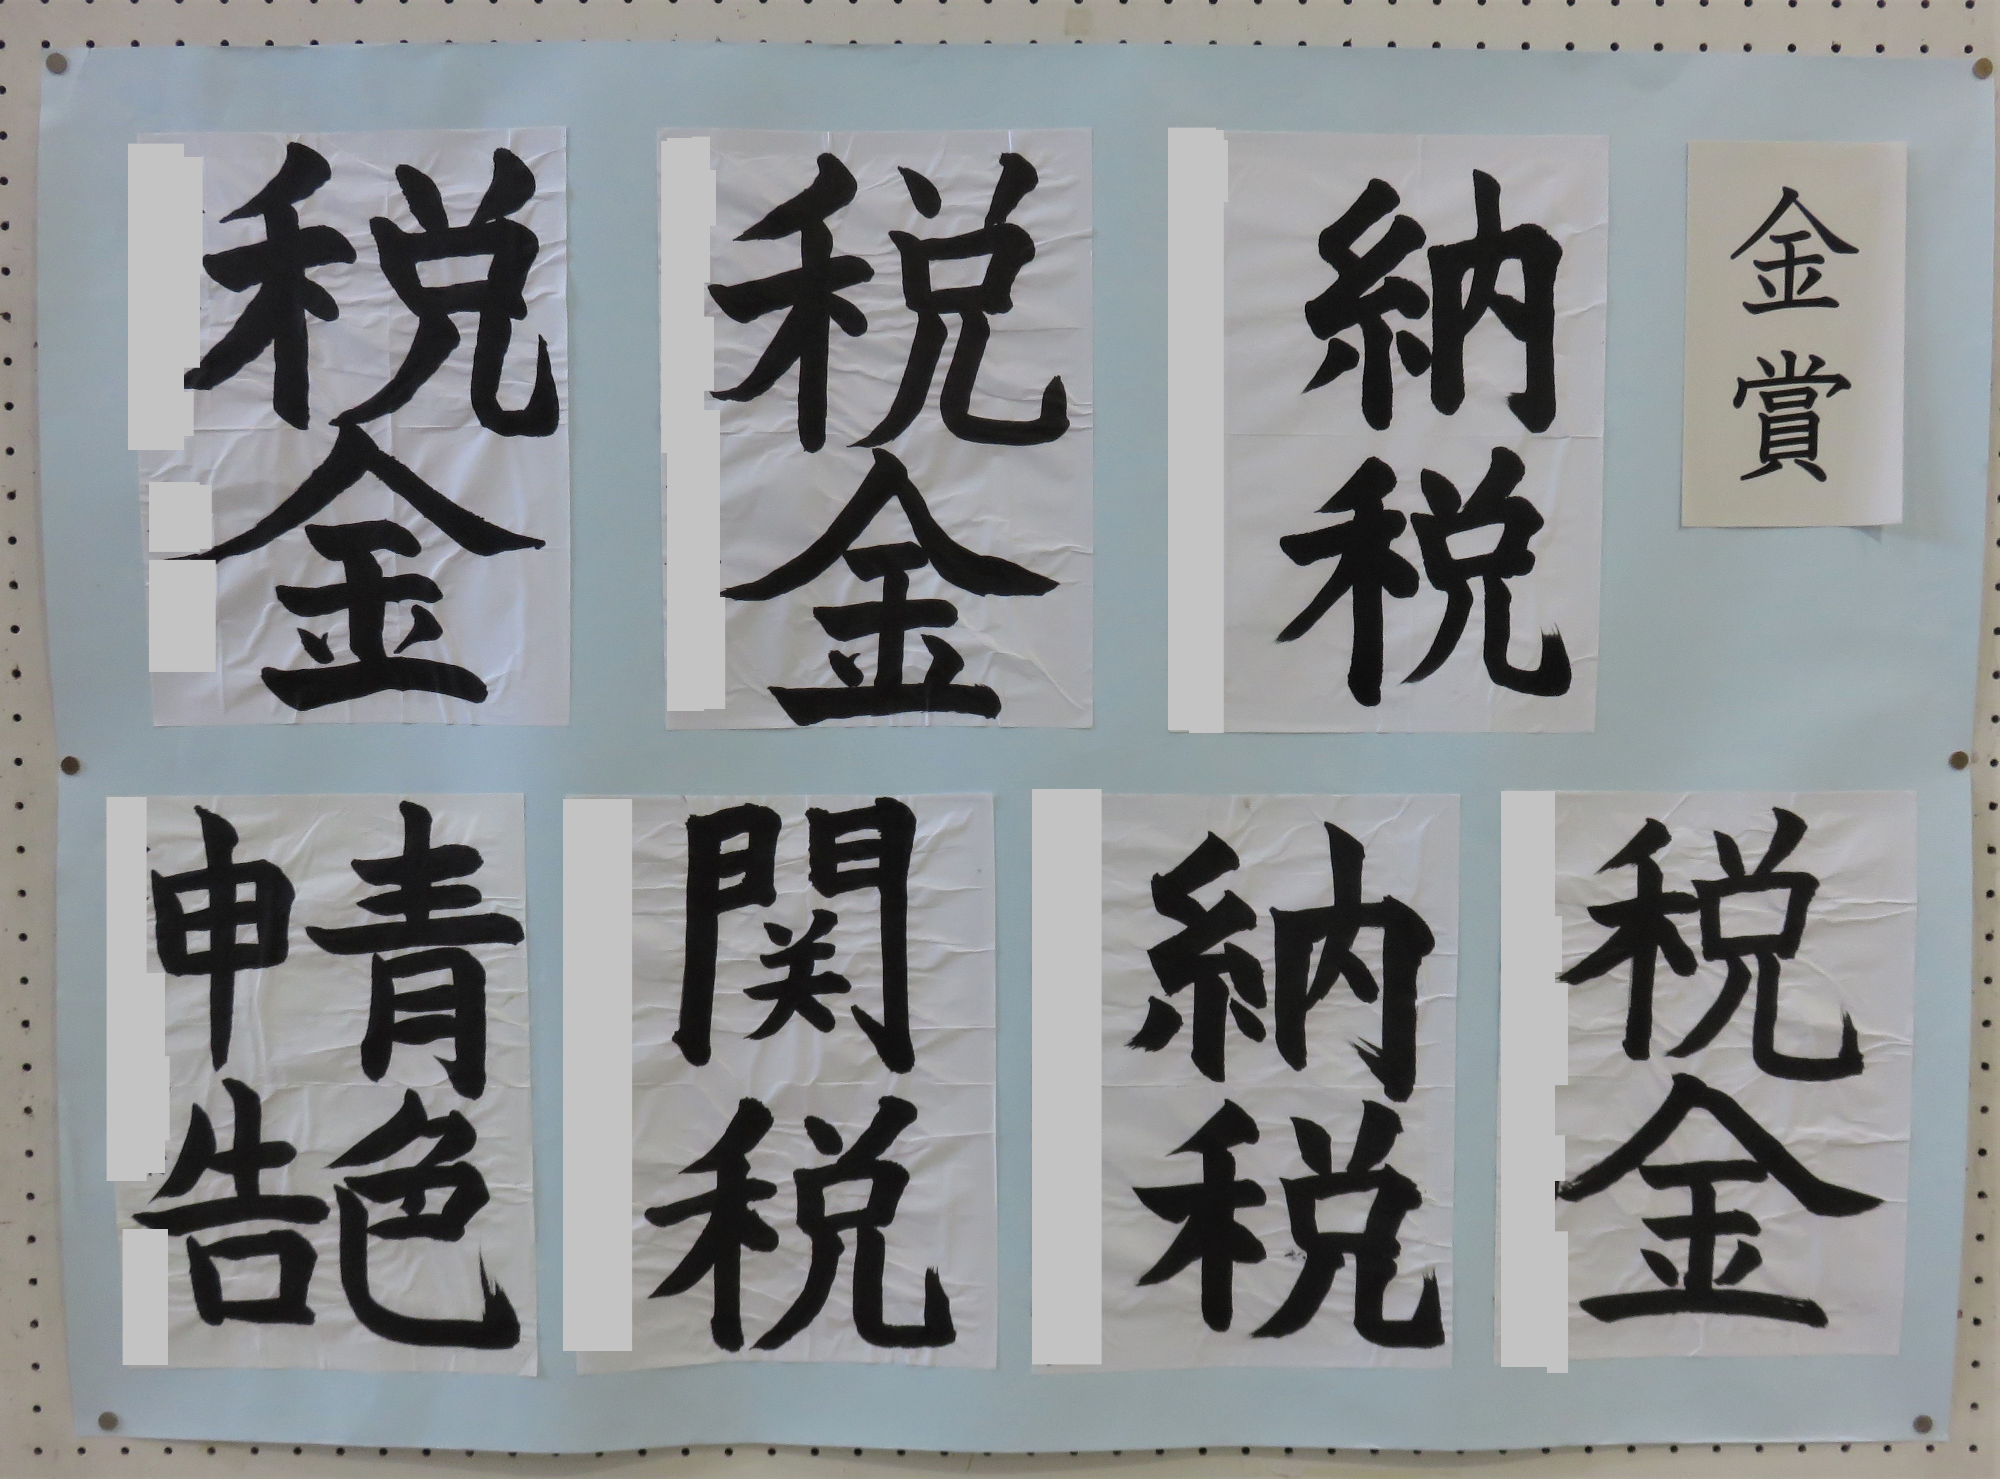 金賞
納税
税金
税金
税金
納税
関税
青色
申告